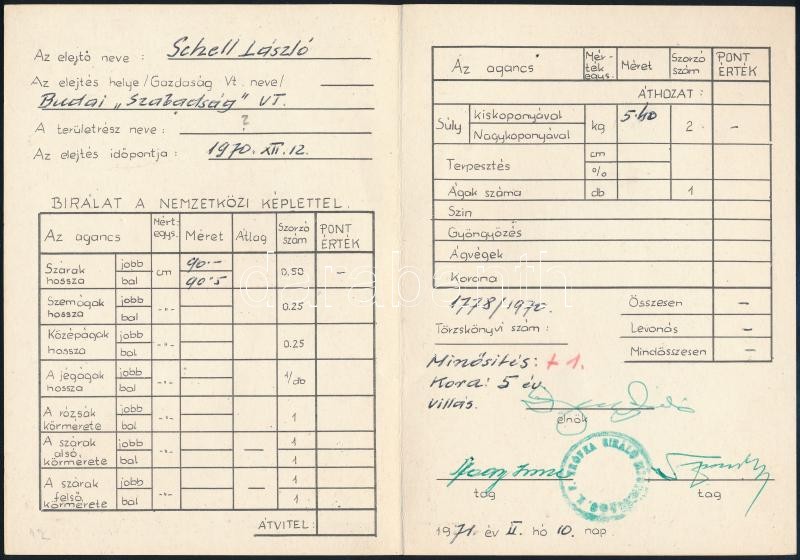 Az elejtő neve: Schell László
Az elejtés helye/Gazdaság Vt. neve/
Budai „Szabadság" VT.
A területrész neve: ?
Az elejtés időpontja: 1970. XII. 12.
BIRÁLAT A NEMZETKÖZI KÉPLETTEL.
Az agancs Mért. egys. Méret Átlag Szorzó szám PONT ÉRTÉK
Szárak hossza jobb cm 90.- 0,50 -
bal 90.5
Szemágak hossza jobb -"- 0.25
bal
Középágak hossza jobb -"- 0.25
bal
A jégágak hossza jobb -"- 1/db
bal
A rózsák körmérete jobb -"- 1
bal
A szárak alsó körmérete jobb -"- 1
bal — 1
A szárak felső körmérete jobb -"- — 1
bal 1
ÁTVITEL:
Az agancs Mér-ték egys. Méret Szorzó szám PONT ÉRTÉK
ÁTHOZAT:
Súly kiskoponyával kg 5.40 2 -
Nagykoponyával
Terpesztés cm
%
Ágak száma db 1
Szin
Gyöngyözés
Ágvégek
Korona
1778/1970. Összesen -
Törzskönyvi szám: Levonás -
Mindösszesen -
Minősítés: + 1.
Kora: 5 év
villás.
elnök
Nagy Imre
tag tag
1971 év II. hó 10. nap
darabanth